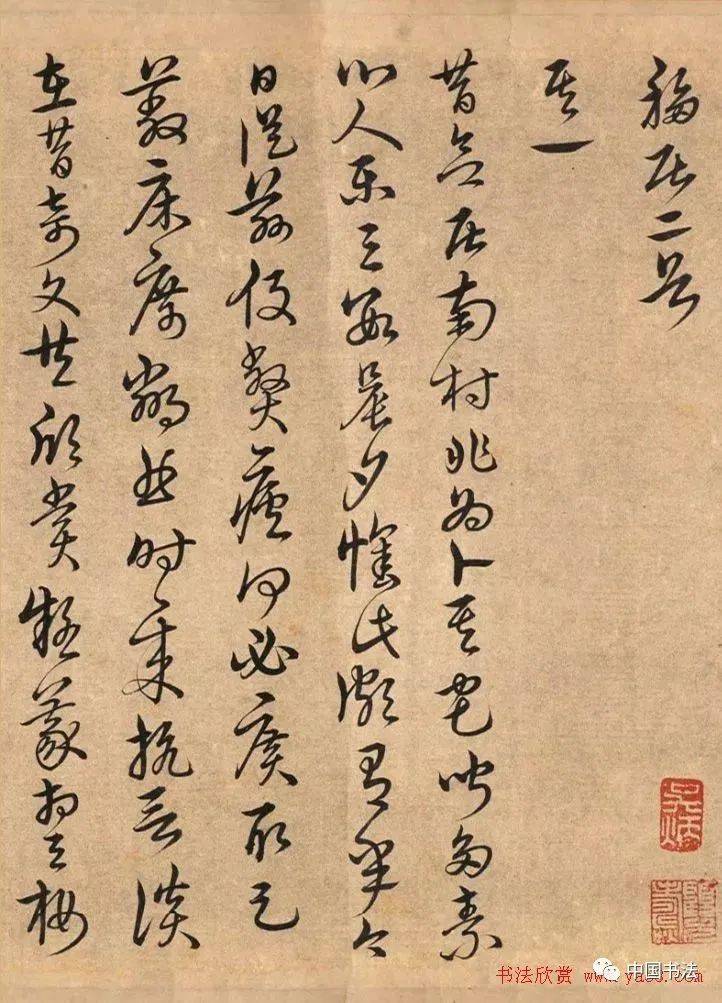 移居二首
其一
昔欲居南村非為卜其宅聞多素
心人樂與數晨夕懷此頗有年今
日從茲役弊廬何必廣取足
蔽床席鄰曲時時來抗言談
在昔奇文共欣賞疑義相與析
中国书法
书法欣赏